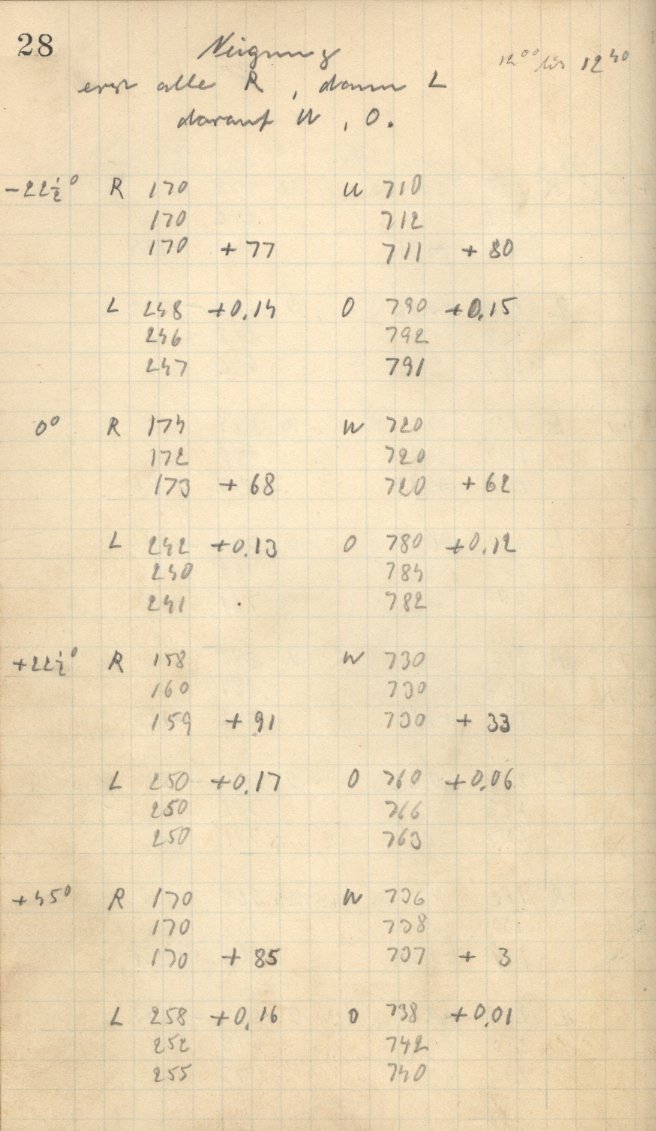 28 Neigung 12⁰⁰ bis 12⁴⁰
erst alle R, dann L
darauf W, O.
-22½° R 170 W 710
170 712
170 +77 711 +80
L 248 +0,14 O 790 +0,15
246 792
247 791
0° R 174 W 720
172 720
173 +68 720 +62
L 242 +0,13 O 780 +0,12
240 784
241 . 782
+22½° R 158 W 730
160 730
159 +91 730 +33
L 250 +0,17 O 760 +0,06
250 766
250 763
+45° R 170 W 736
170 738
170 +85 737 +3
L 258 +0,16 O 738 +0,01
252 742
255 740